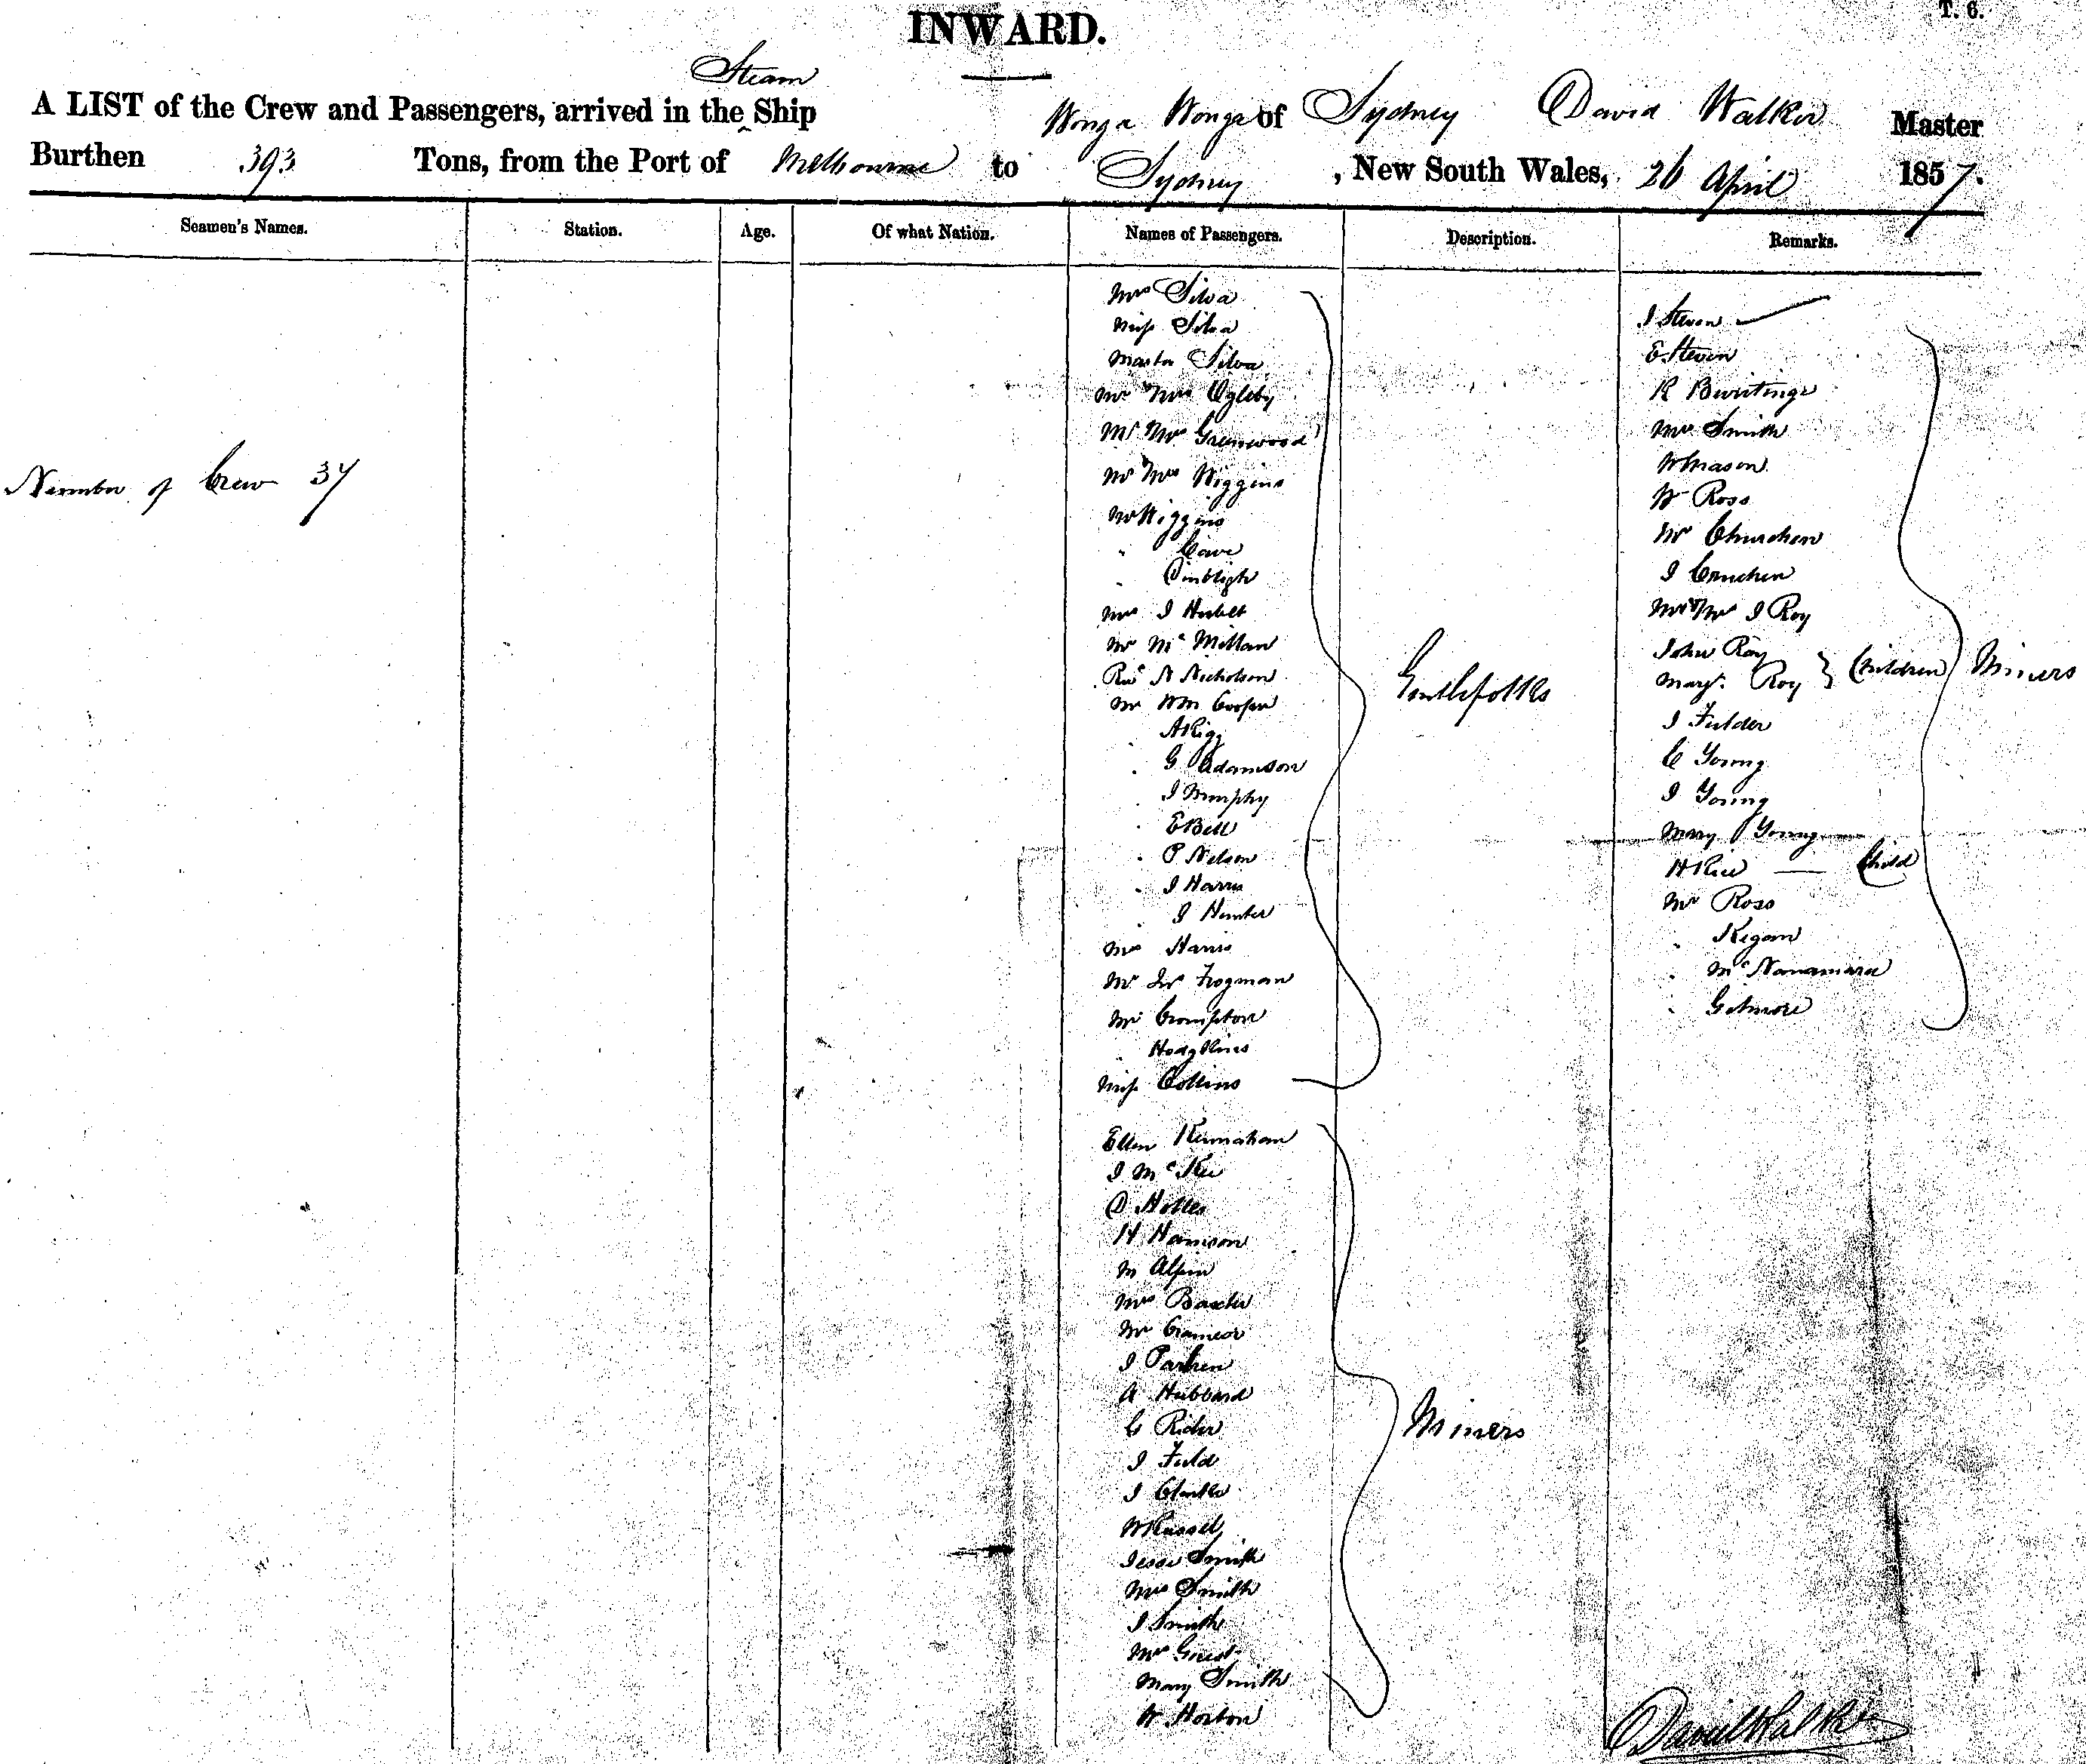 T. 6.
INWARD.
Steam
A LIST of the Crew and Passengers, arrived in the Ship Wonga Wonga of Sydney David Walker Master
Burthen 393 Tons, from the Port of Melbourne to Sydney, New South Wales, 26 April 1857.
Seamen's Names. Station. Age. Of what Nation. Names of Passengers. Description. Remarks.
Number of Crew 37
Mrs Silva
Miss Silva
Master Silva
Mr Mrs Ogleby
Mr Mrs Greenwood
Mr Mrs Wiggins
Mr Wiggins
" Cave
"
Mrs J
Mr McMillan
Revd N Nicholson
Mr Wm Cooper
" A Rigg
" G Adamson
" J Murphy
" E Bell
" P Nelson
" J Harris
" J Hunter
Mrs Harris
Mr Jno Frogman
Mr Crompton
" Hodgkins
Miss Collins
Gentlefolks
Ellen Kernahan
J McKee
D
H Harrison
M Alpin
Mrs Baxter
Mr
J
A Hubbard
C Rider
J Field
J
W Russel
Jesse Smith
Mrs Smith
J Smith
Mr
Mary Smith
W Horton
Miners
J Steven
E Steven
R
Mrs Smith
W Mason
W Ross
Mr Churchen
J
Mr Mrs J Roy
John Roy
Margt. Roy } Children
J Fielder
C Young
J Young
Mary Young
H Rice — Child
Mr Ross
" Kegan
" McNamara
" Gilmore
Miners
David Walker